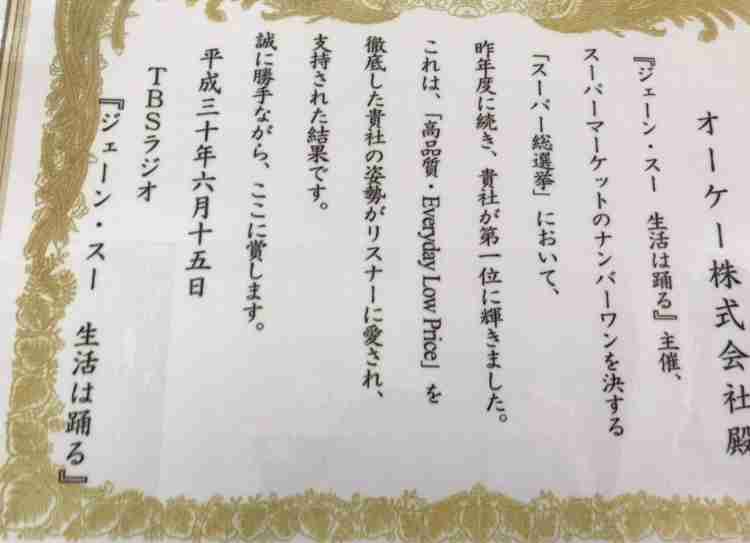 オーケー株式会社殿
『ジェーン・スー 生活は踊る』主催、
スーパーマーケットのナンバーワンを決する
「スーパー総選挙」において、
昨年度に続き、貴社が第一位に輝きました。
これは、「高品質・Everyday Low Price」を
徹底した貴社の姿勢がリスナーに愛され、
支持された結果です。
誠に勝手ながら、ここに賞します。
平成三十年六月十五日
TBSラジオ
『ジェーン・スー 生活は踊る』